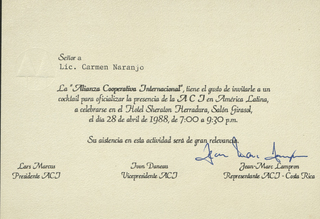 Señor a
Lic. Carmen Naranjo
La "Alianza Cooperativa Internacional", tiene el gusto de invitarle a un
cocktail para oficializar la presencia de la A C I en América Latina,
a celebrarse en el Hotel Sheraton Herradura, Salón Girasol,
el día 28 de abril de 1988, de 7:00 a 9:30 p.m.
Su asistencia en esta actividad será de gran relevancia.
Lars Marcus
Ivan Daneau
Jean-Marc Lampron
Presidente ACI
Vicepresidente ACI
Representante ACI - Costa Rica